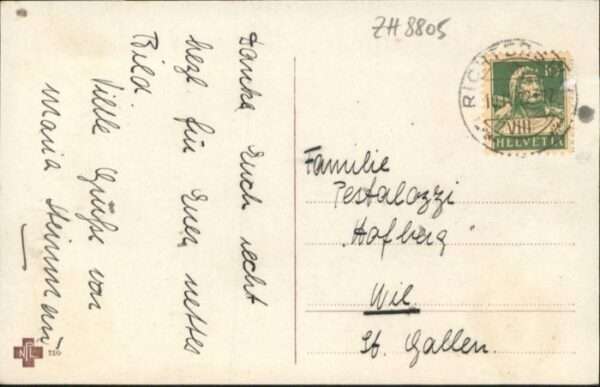 ZH 8805
Danke Euch recht
herzl für Euer nettes
Bild.
Viele Grüße von
Maria
RICHTERSW
VIII
HELVETIA
Familie
Pestalozzi
"Hofberg"
Wil
St. Gallen.
710